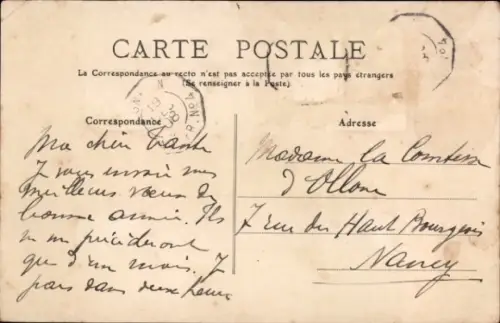 CARTE POSTALE
La Correspondance au recto n'est pas acceptée par tous les pays étrangers
(Se renseigner à la Poste)
Correspondance
Adresse
Ma chère tante
Je vous envoie mes
meilleurs vœux de
bonne année. Ils
ne me précéderont
que d'un mois. Je
pars dans deux heures
Madame la Comtesse
d'Ollone
7 rue des Haut Bourgeois
Nancy